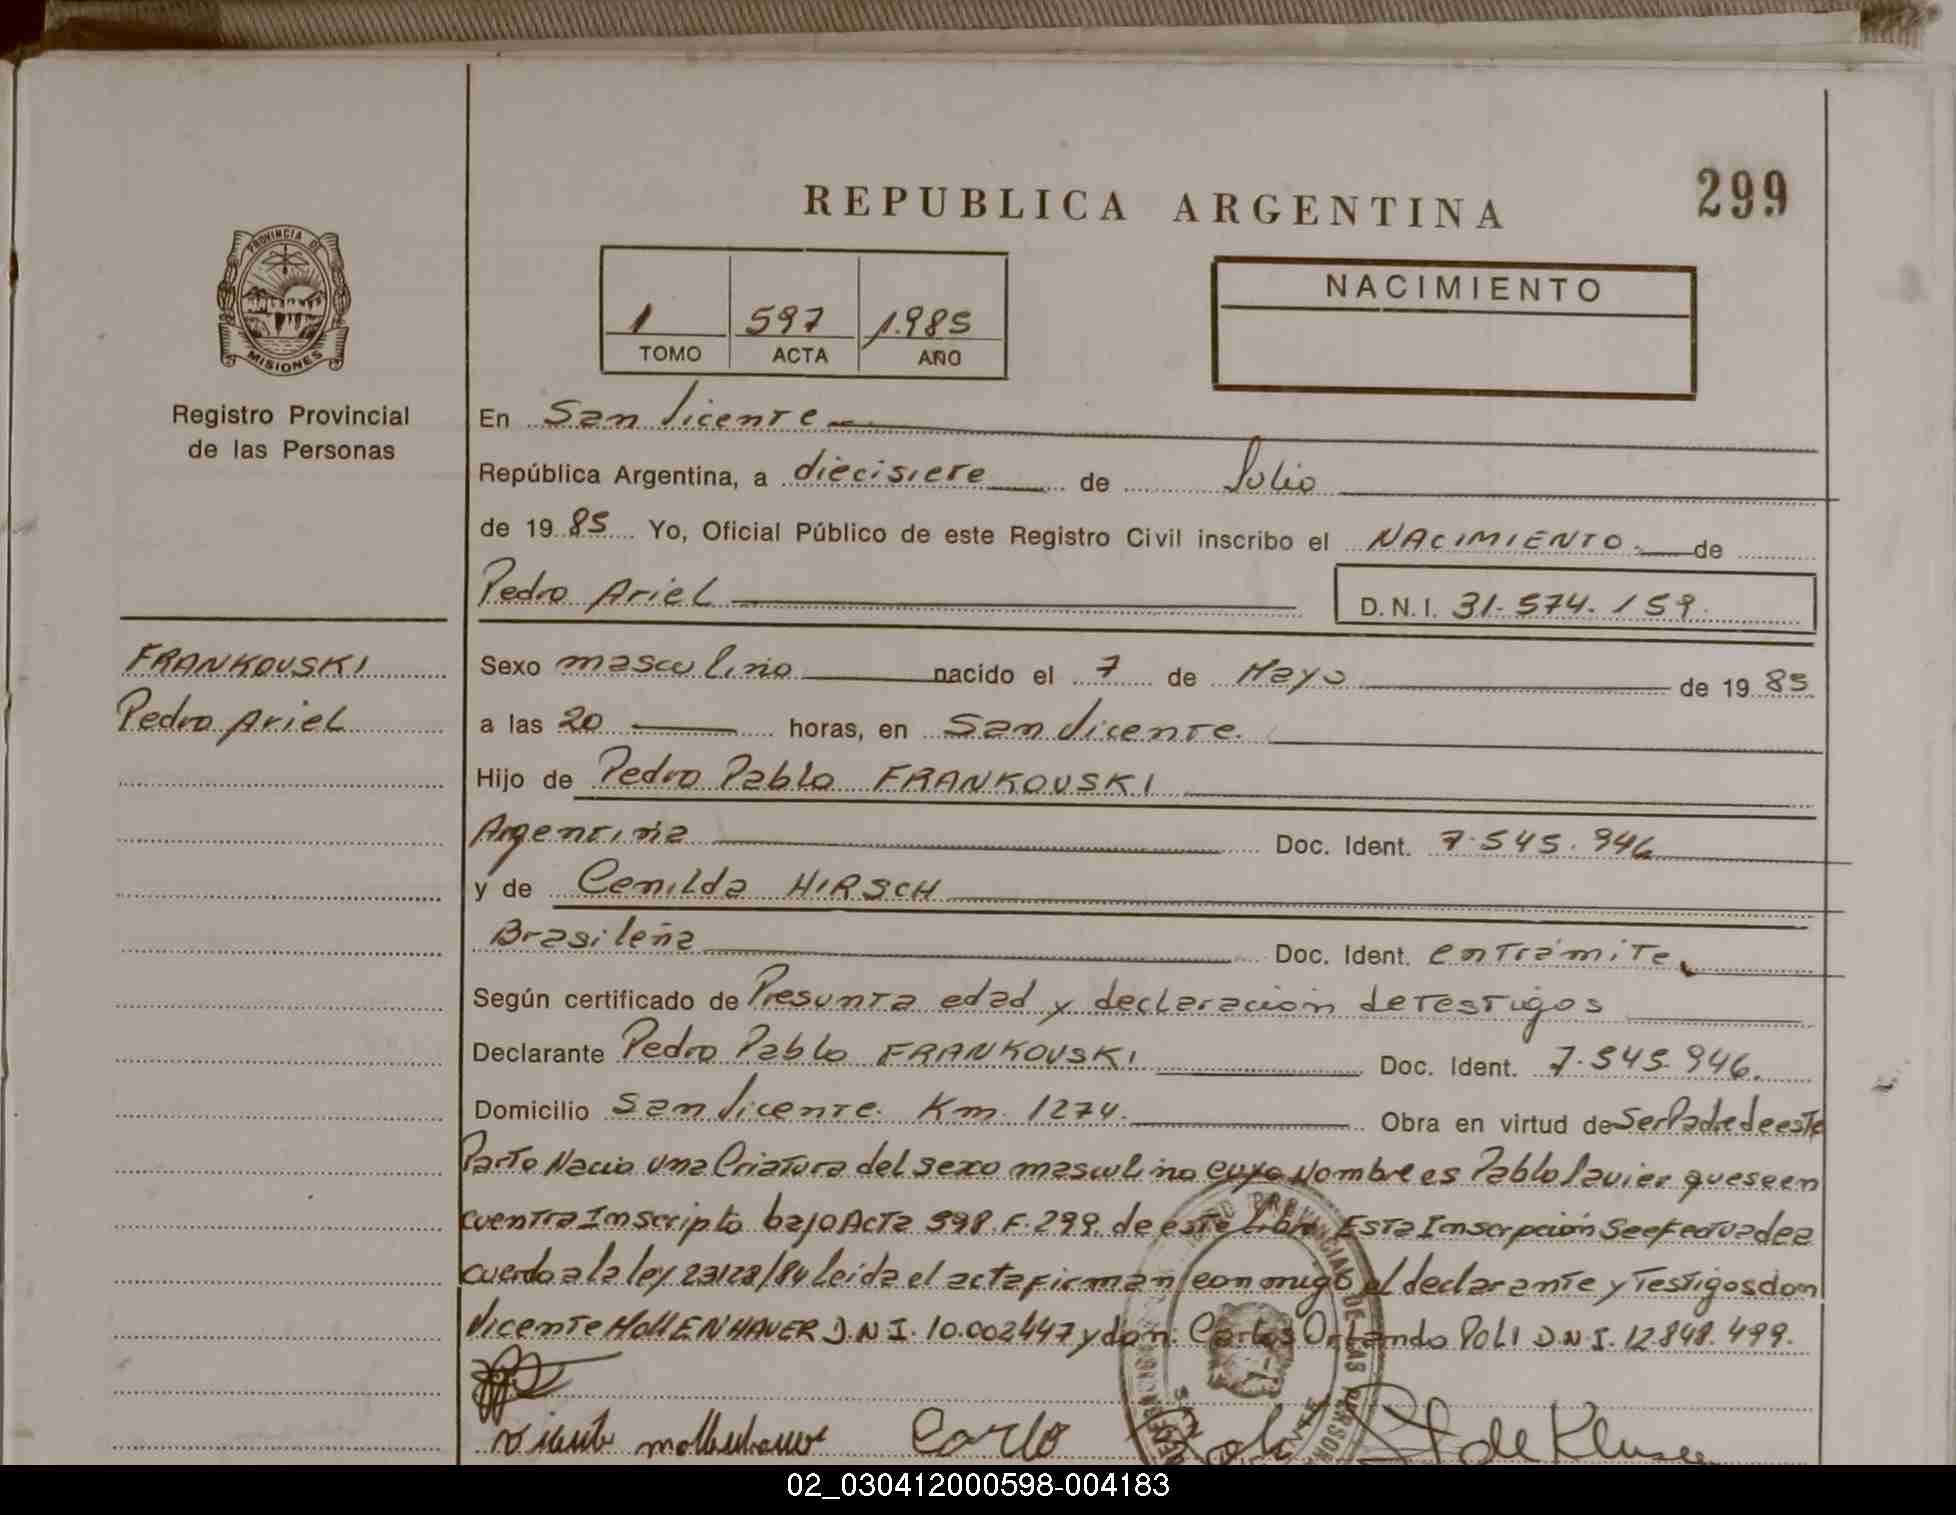 299
REPUBLICA ARGENTINA
PROVINCIA DE
MISIONES
Registro Provincial
de las Personas
1 597 1.985
TOMO ACTA AÑO
NACIMIENTO
En San Vicente
República Argentina, a diecisiete de Julio
de 19 85 Yo, Oficial Público de este Registro Civil inscribo el NACIMIENTO. de
Pedro Ariel D.N.I. 31.574.159.
FRANKOUSKI
Pedro Ariel
Sexo masculino nacido el 7 de Mayo de 19 85
a las 20 horas, en San Vicente.
Hijo de Pedro Pablo FRANKOUSKI
Argentina Doc. Ident. 7.545.946
y de Cenilda HIRSCH
Brasileña Doc. Ident. en trámite.
Según certificado de Presunta edad y declaración de testigos
Declarante Pedro Pablo FRANKOUSKI Doc. Ident. 7.545.946.
Domicilio San Vicente. Km. 1274. Obra en virtud de Ser Padre de este
Parto Nacio una Criatura del sexo masculino cuyo Nombre es Pablo Javier que se en
cuentra Inscripto bajo Acta 598. F. 299. de este Libro Esta Inscrpción Se efectua de a
cuerdo a la ley 23128/84 leida el acta firman conmigo el declarante y Testigos don
Vicente MOLLENHAUER D.N.I. 10.002447 y don. Carlos Orlando POLI D.N.I. 12.848.499.
Carlo de
02_030412000598-004183